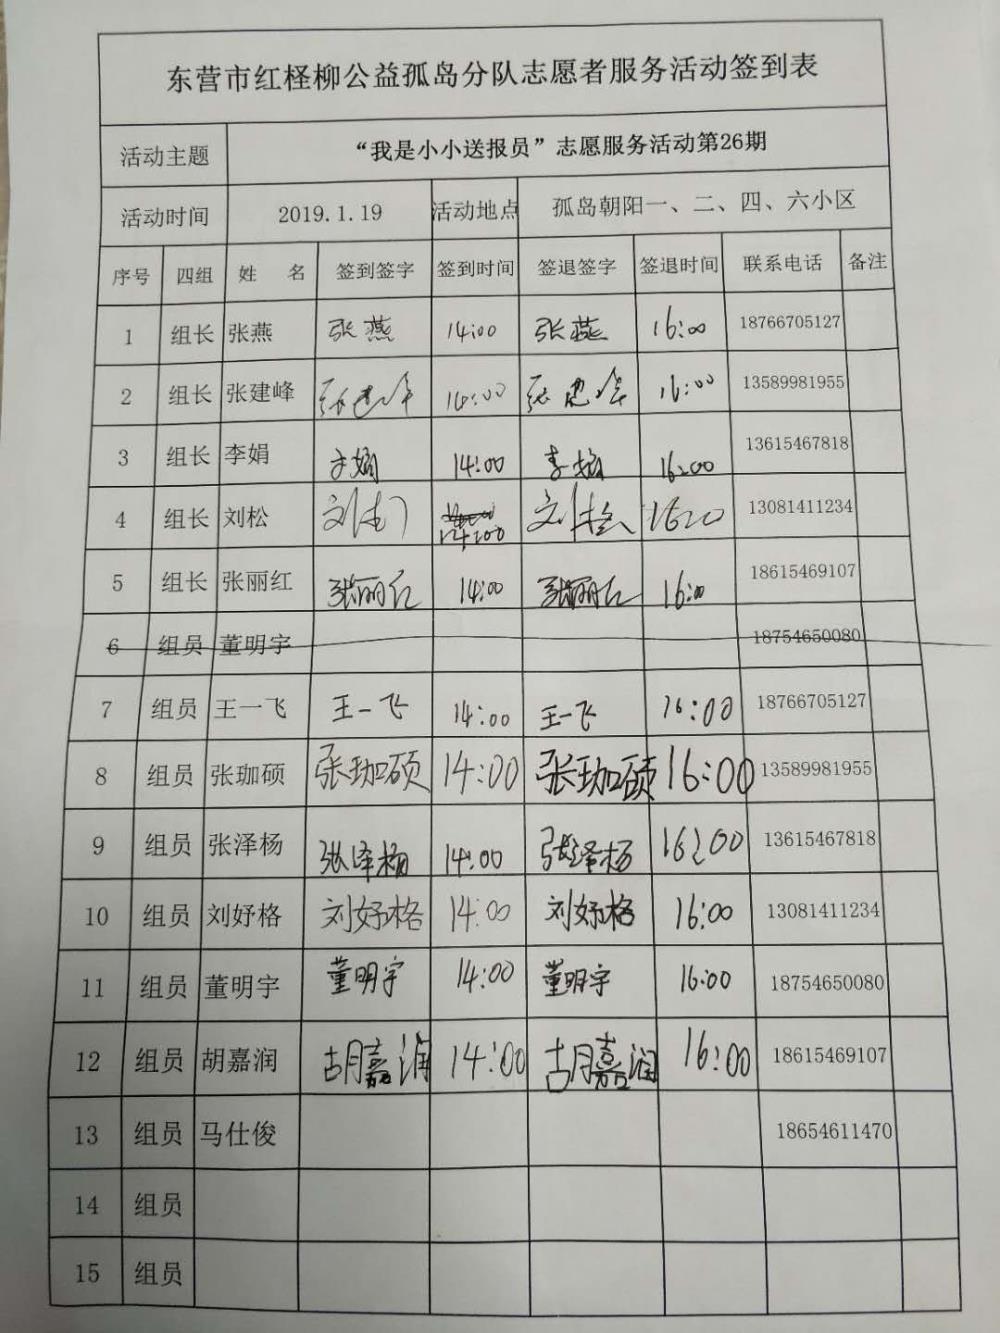 东营市红柽柳公益孤岛分队志愿者服务活动签到表
活动主题 “我是小小送报员”志愿服务活动第26期
活动时间 2019.1.19 活动地点 孤岛朝阳一、二、四、六小区
序号 四组 姓 名 签到签字 签到时间 签退签字 签退时间 联系电话 备注
1 组长 张燕 张燕 14:00 张燕 16:00 18766705127
2 组长 张建峰 张建峰 14:00 张建峰 16:00 13589981955
3 组长 李娟 李娟 14:00 李娟 16:00 13615467818
4 组长 刘松 刘松 14:00 刘松 1600 13081411234
5 组长 张丽红 张丽红 14:00 张丽红 16:00 18615469107
6 组员 董明宇 18754650080
7 组员 王一飞 王一飞 14:00 王一飞 16:00 18766705127
8 组员 张珈硕 张珈硕 14:00 张珈硕 16:00 13589981955
9 组员 张泽杨 张泽杨 14:00 张泽杨 16:00 13615467818
10 组员 刘妤格 刘妤格 14:00 刘妤格 16:00 13081411234
11 组员 董明宇 董明宇 14:00 董明宇 16:00 18754650080
12 组员 胡嘉润 胡嘉润 14:00 胡嘉润 16:00 18615469107
13 组员 马仕俊 18654611470
14 组员
15 组员